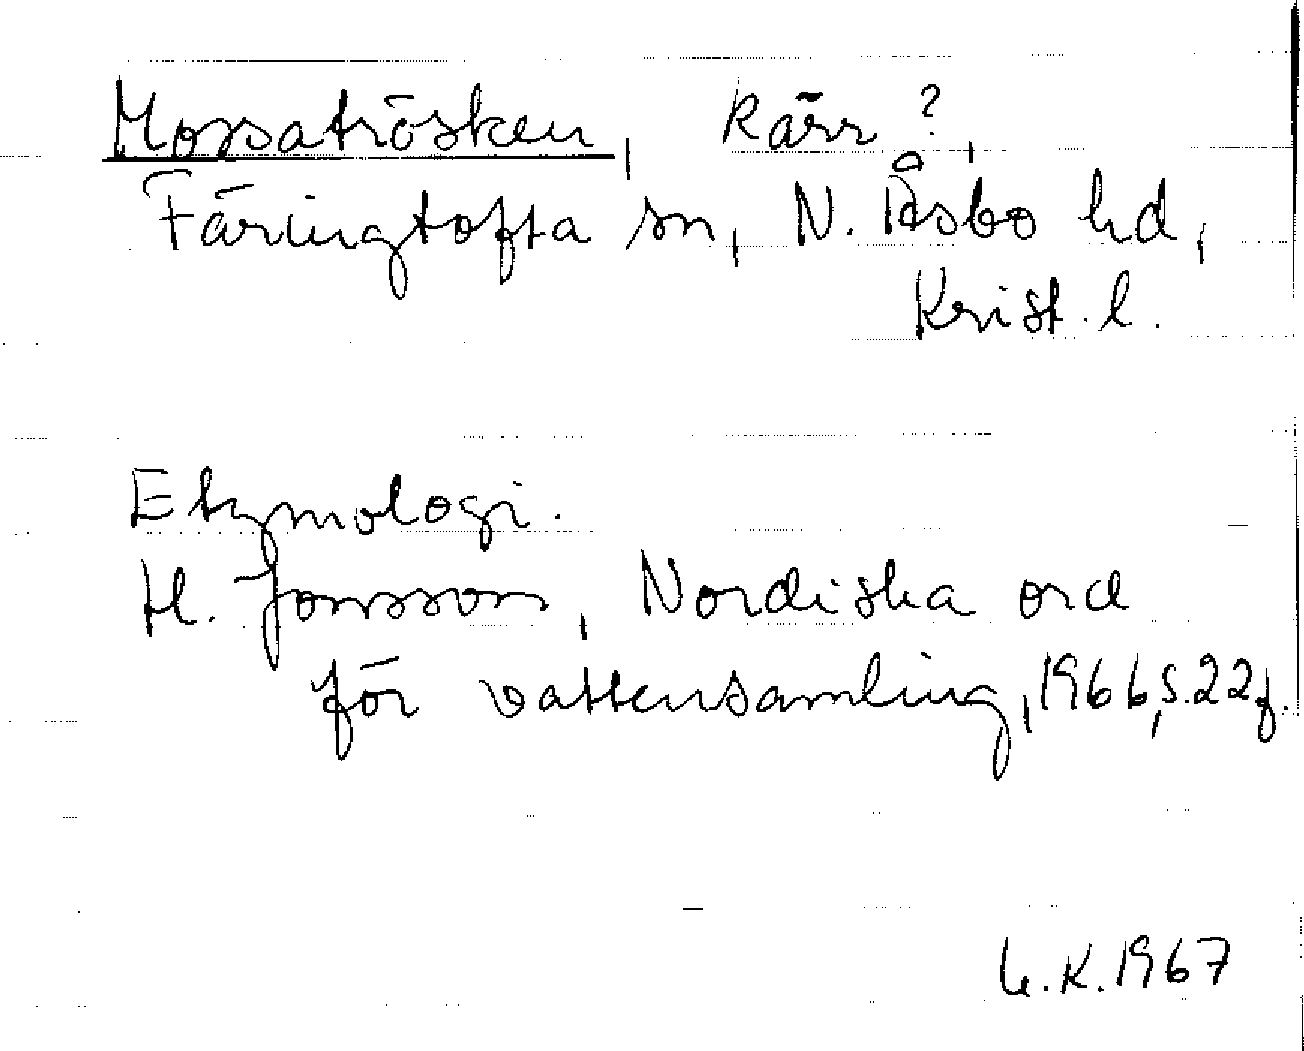 Mossatrösken, kärr?,
Färingtofta sn, N. Åsbo hd,
Krist. l.
Etymologi.
H. Jonsson, Nordiska ord
för vattensamling, 1966, s. 22 f.
G.K. 1967